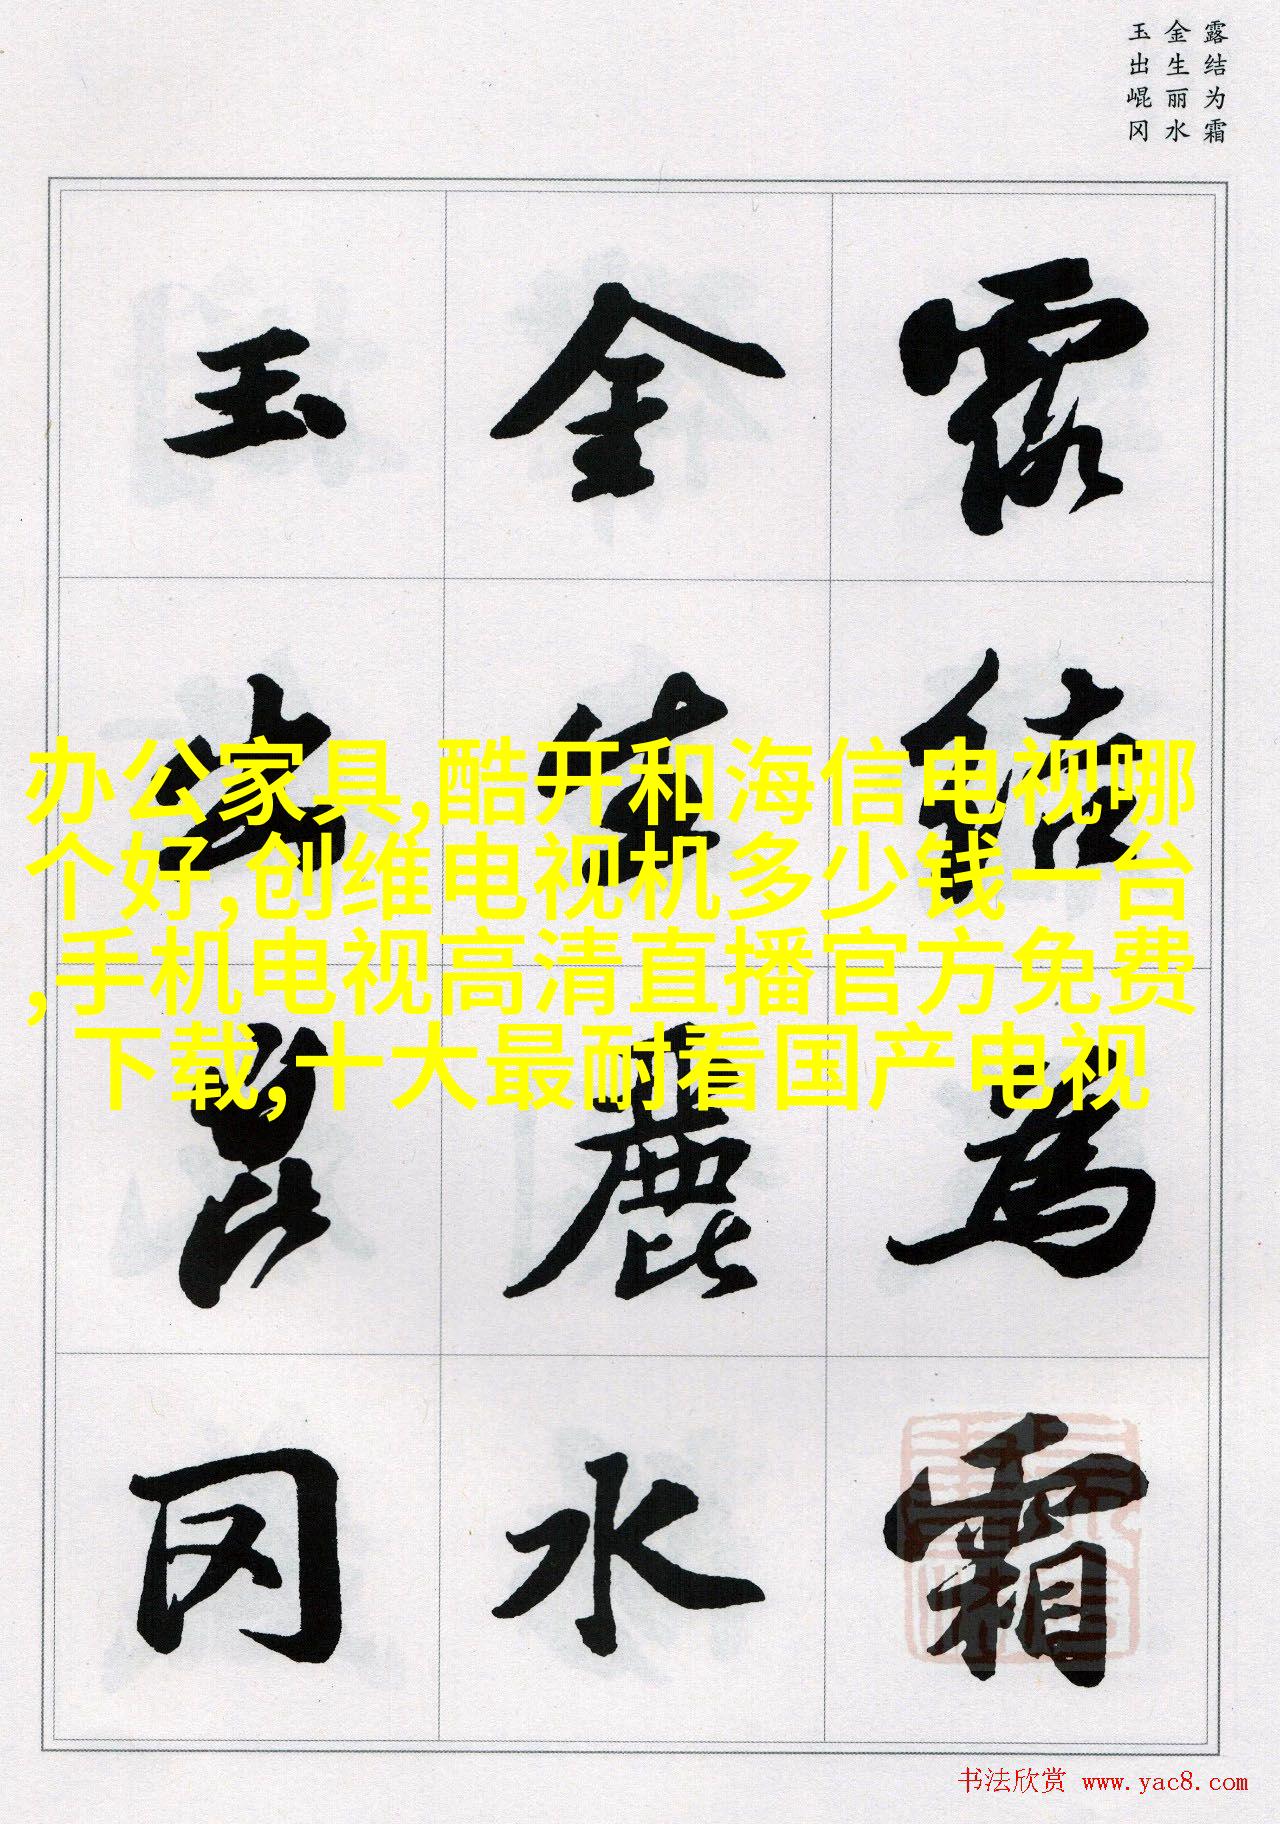 露结为霜
金生丽水
玉出崐冈
露結為霜
金生麗水
玉出崑冈
办公家具,酷开和海信电视哪
个好,创维电视机多少钱一台
,手机电视高清直播官方免费
下载,十大最耐看国产电视
书法欣赏 www.yac8.com